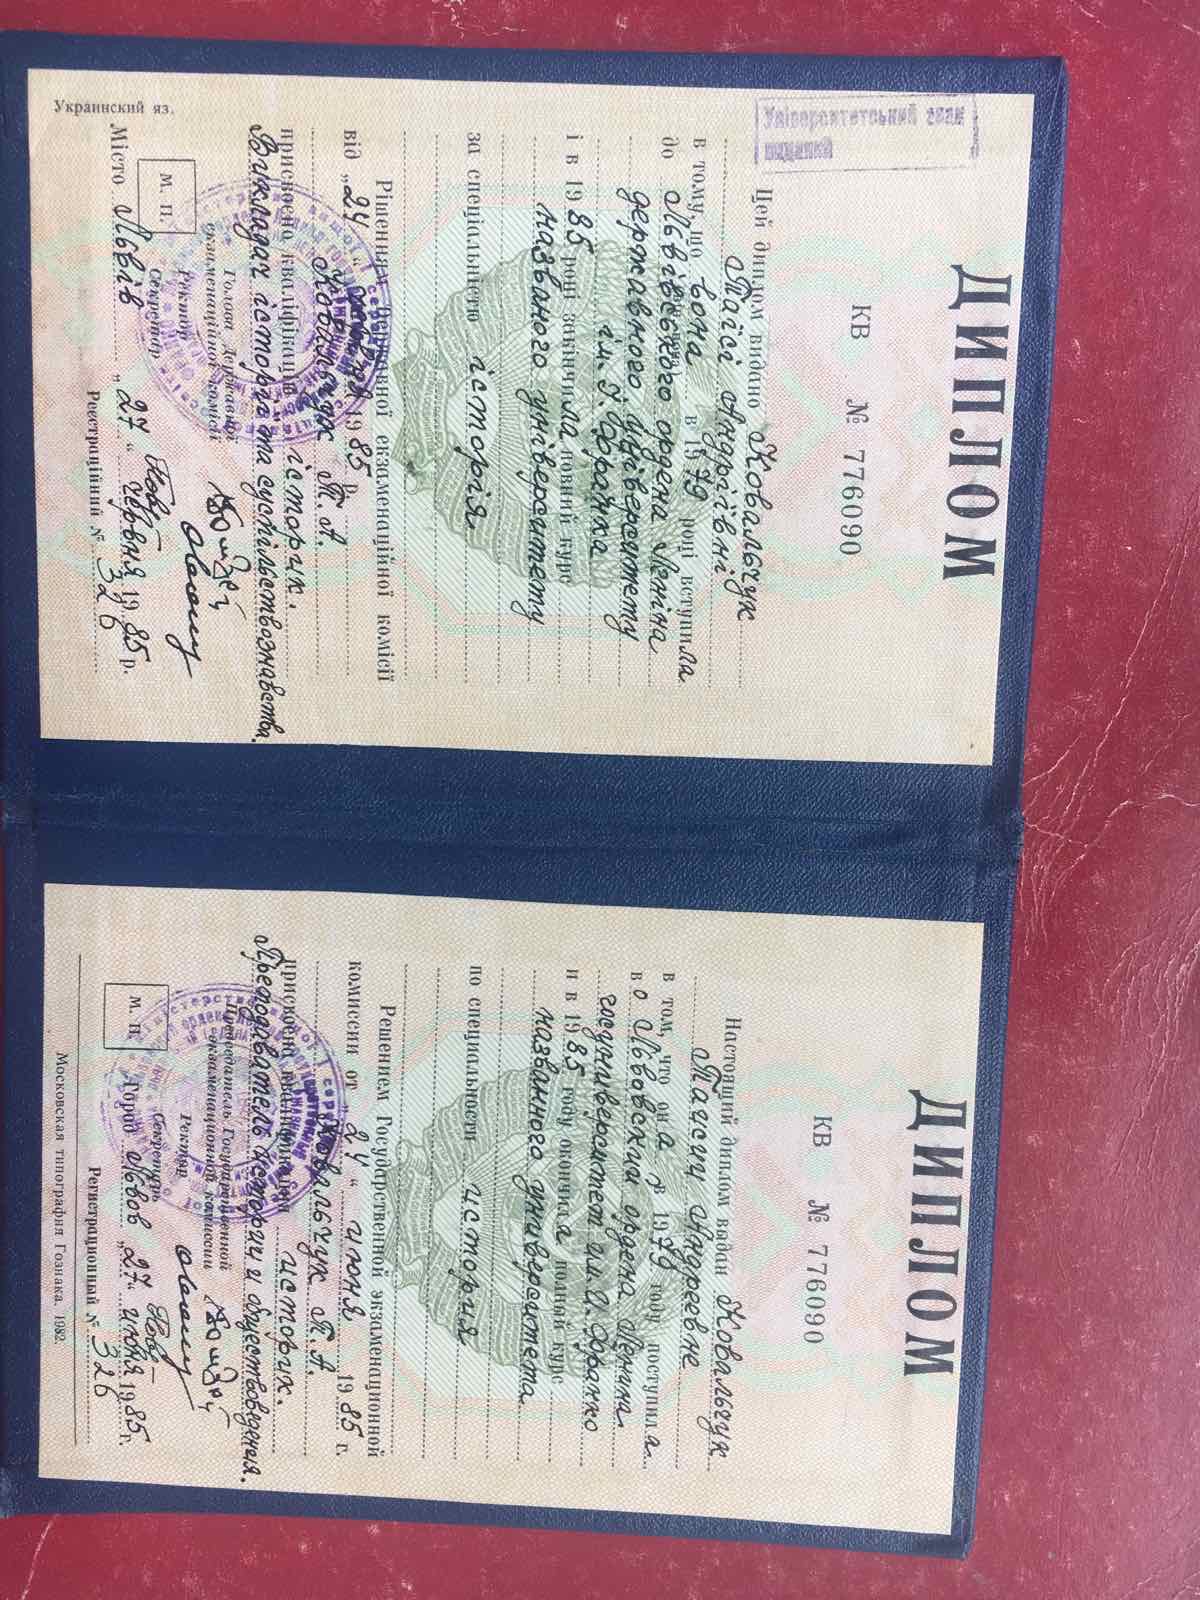 Украинский яз.
Університетський знак
виданий
ДИПЛОМ
КВ № 776090
Цей диплом видано Ковальчук
Таїсі Андріївні
в тому, що вона в 1979 році вступила
до Львівського ордена Леніна
державного університету
ім. І. Франка
і в 1985 році закінчила повний курс
названого університету
за спеціальністю історія
Рішенням Державної екзаменаційної комісії
від „24“ червня 1985 р.
Ковальчук Т. А.
присвоєно кваліфікацію історик.
Викладач історії та суспільствознавства.
М. П.
Голова Державної
екзаменаційної комісії
Ректор
Секретар
Місто Львів „27“ червня 1985 р.
Реєстраційний № 326
ДИПЛОМ
КВ № 776090
Настоящий диплом выдан Ковальчук
Таисии Андреевне
в том, что она в 1979 году поступила
во Львовский ордена Ленина
госуниверситет им. И. Франко
и в 1985 году окончила полный курс
названного университета
по специальности история
Решением Государственной экзаменационной
комиссии от „24“ июня 1985 г.
Ковальчук Т. А.
присвоена квалификация историк.
Преподаватель истории и обществоведения.
М. П.
Председатель Государственной
экзаменационной комиссии
Ректор
Секретарь
Город Львов „27“ июня 1985 г.
Регистрационный № 326
Московская типография Гознака. 1982.